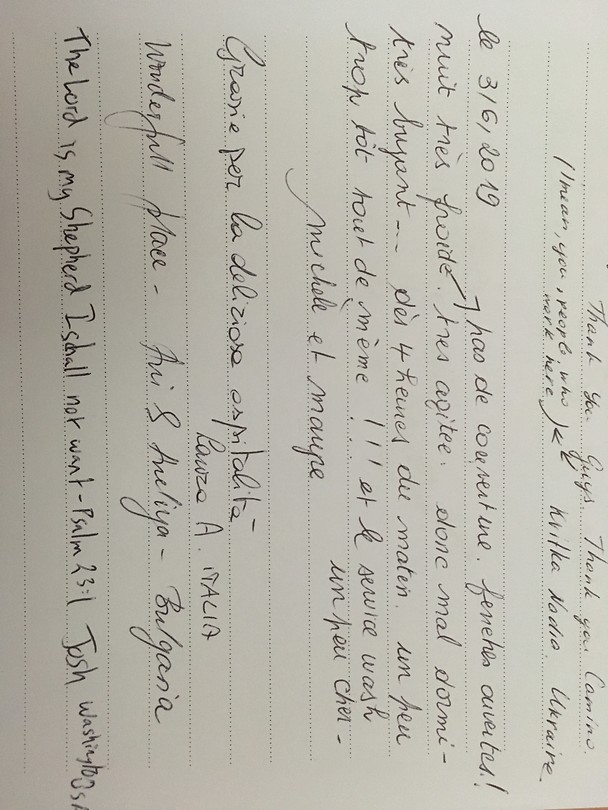 Thank you Guys. Thank you Camino.
(I mean, you, people who
work here) Kvitka Nadia. Ukraine.
le 3/6/2019 pas de couverture. fenetres ouvertes!
nuit très froide, très agitée. donc mal dormi -
très bruyant -- dès 4 heures du matin. un peu
trop tôt tout de même !!! et le service wash
un peu cher -
Michele et
Grazie per la deliziosa ospitalità -
Laura A. ITALIA
Wonderfull place - Ani & Aneliya - Bulgaria
The Lord is my Shepherd I shall not want - Psalm 23:1 Josh Washington USA